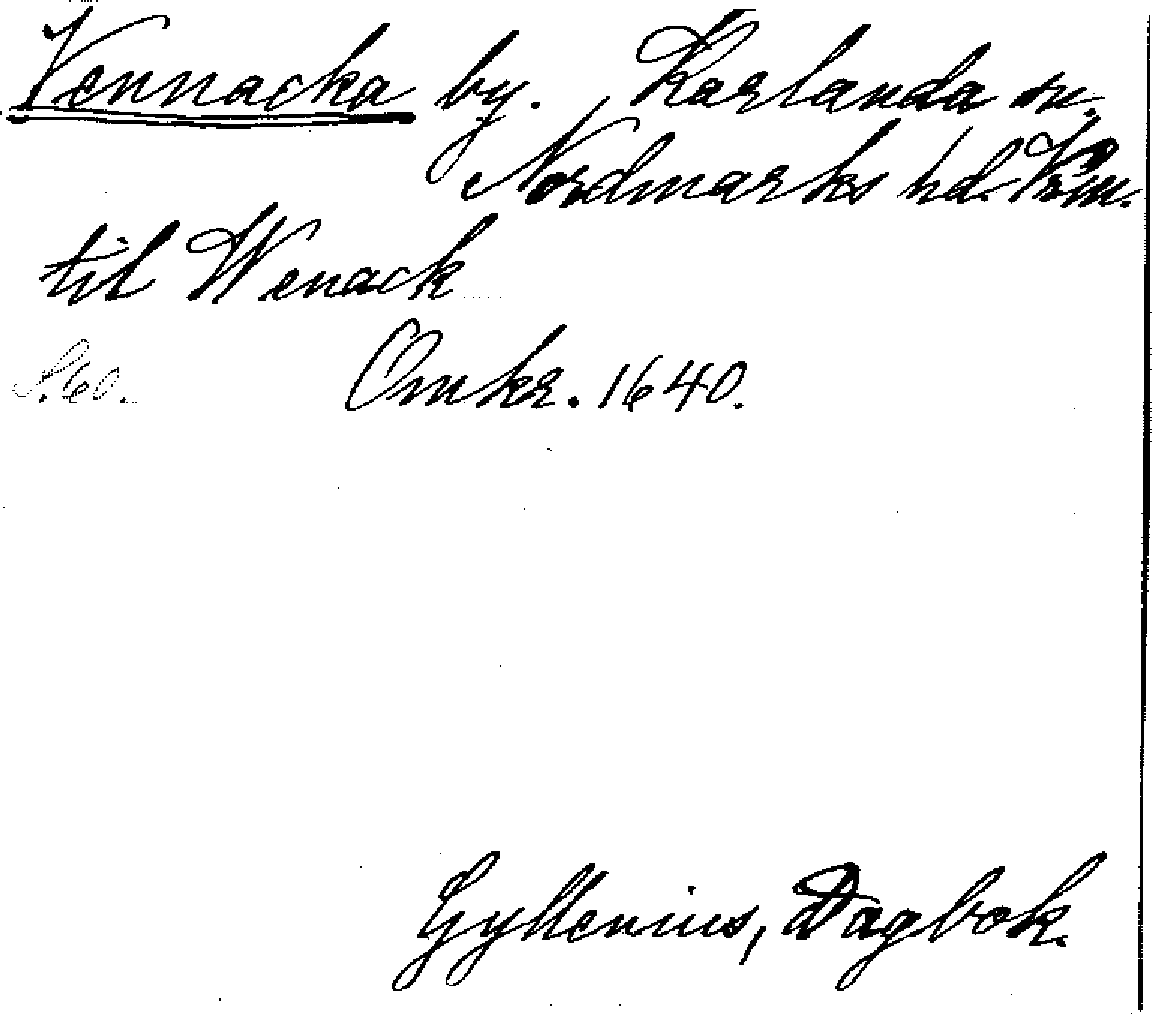 Vennacka by. Karlanda sn.
Nordmarks hd. Vrm.
til Wenack
S. 60. Omkr. 1640.
Gyllenius, Dagbok.